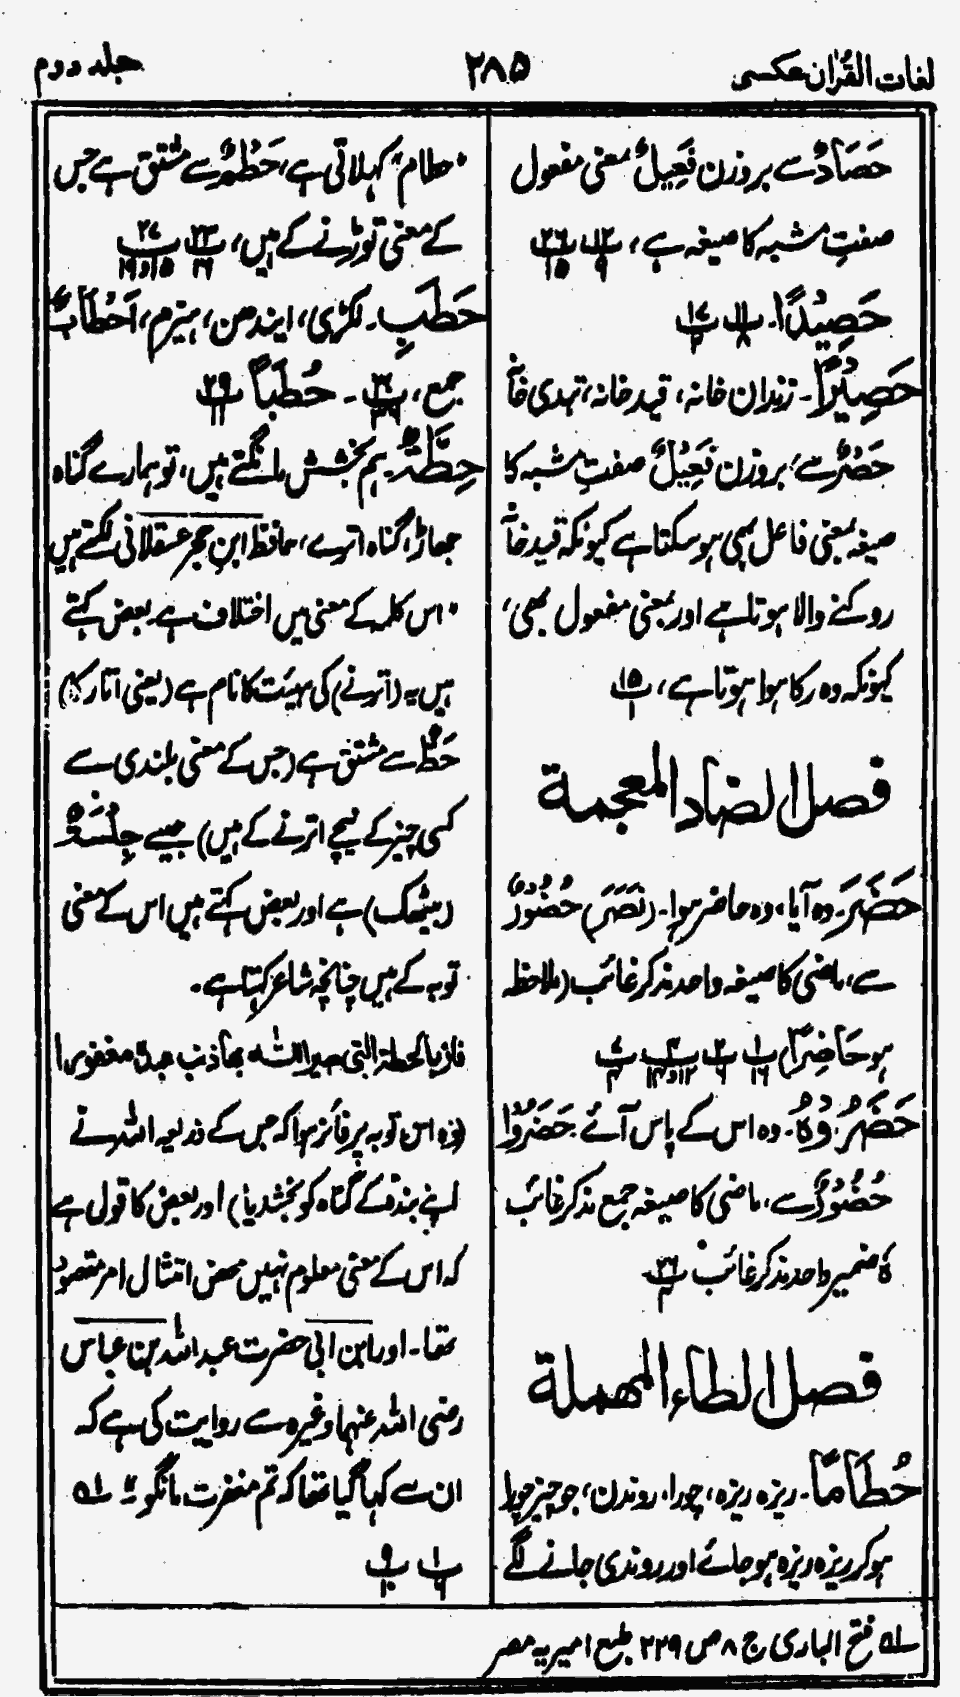 لغات القرآن عکسی
۲۸۵
جلد دوم
حَصَادٌ سے بروزن فَعِیلٌ بمعنی مفعول
صفتِ مشبہ کا صیغہ ہے، پ۱۲/۹ پ۲۶/۱۵
حَصِیدًا۔ پ۱۱/۸ پ۱۷/۲
حَصِیْرًا۔ زندان خانہ، قید خانہ، تہدی خانہ
حَصْرٌ سے، بروزن فَعِیْلٌ صفتِ مشبہ کا
صیغہ بمعنی فاعل بھی ہو سکتا ہے کیونکہ قید خانہ
روکنے والا ہوتا ہے اور بمعنی مفعول بھی،
کیونکہ وہ رکا ہوا ہوتا ہے، پ۱۵/۱
فصل الضاد المعجمة
حَضَرَ۔ وہ آیا، وہ حاضر ہوا۔ (نَصَرَ) حُضُوْرٌ
سے، ماضی کا صیغہ واحد مذکر غائب (ملاحظہ
ہو حَاضِرًا) پ۱/۱۶ پ۲/۶ پ۴/۱۲و۱۳ پ۷/۴
حَضَرُوْهُ۔ وہ اس کے پاس آئے حَضَرُوْا
حُضُوْرٌ سے، ماضی کا صیغہ جمع مذکر غائب
ہٗ ضمیر واحد مذکر غائب پ۲۶/۴
فصل الطاء المهملة
حُطَامًا۔ ریزہ ریزہ، چورا، روندن، جو چیز چورا
ہو کر ریزہ ریزہ ہو جائے اور روندی جانے لگے
"حطام" کہلاتی ہے، حَطْمٌ سے مشتق ہے جس
کے معنی توڑنے کے ہیں، پ۲۳/۱۶ پ۲۷/۱۵و۱۹
حَطَبِ۔ لکڑی، ایندھن، ہیزم، اَحْطَابٌ
جمع، پ۳۰/۳۶ ۔ حَطَبًا پ۲۹/۱۱
حِطَّةٌ۔ ہم بخشش مانگتے ہیں، تو ہمارے گناہ
جھاڑ، گناہ اترے، حافظ ابن حجر عسقلانی لکھتے ہیں
"اس کلمہ کے معنی میں اختلاف ہے بعض کہتے
ہیں یہ (اترنے) کی ہیئت کا نام ہے (یعنی اتار کا)
حَطٌّ سے مشتق ہے (جس کے معنی بلندی سے
کسی چیز کے نیچے اترنے کے ہیں) جیسے جِلْسَةٌ
(بیٹھک) ہے اور بعض کہتے ہیں اس کے معنی
توبہ کے ہیں چنانچہ شاعر کہتا ہے۔
فاز بالحطة التي صير الله بها ذنب عبده مغفورا
(وہ اس توبہ پر فائز ہوا کہ جس کے ذریعہ اللہ نے
اپنے بندے کے گناہ کو بخشدیا) اور بعض کا قول ہے
کہ اس کے معنی معلوم نہیں محض امتثال امر مقصود
تھا۔ اور ابن ابی حضرت عبد اللہ بن عباس
رضی اللہ عنہما وغیرہ سے روایت کی ہے کہ
ان سے کہا گیا تھا کہ تم مغفرت مانگو"۔ لہ
پ۱/۶ پ۹/۱۰
لہ فتح الباری ج ۸ ص ۲۲۹ طبع امیریہ مصر